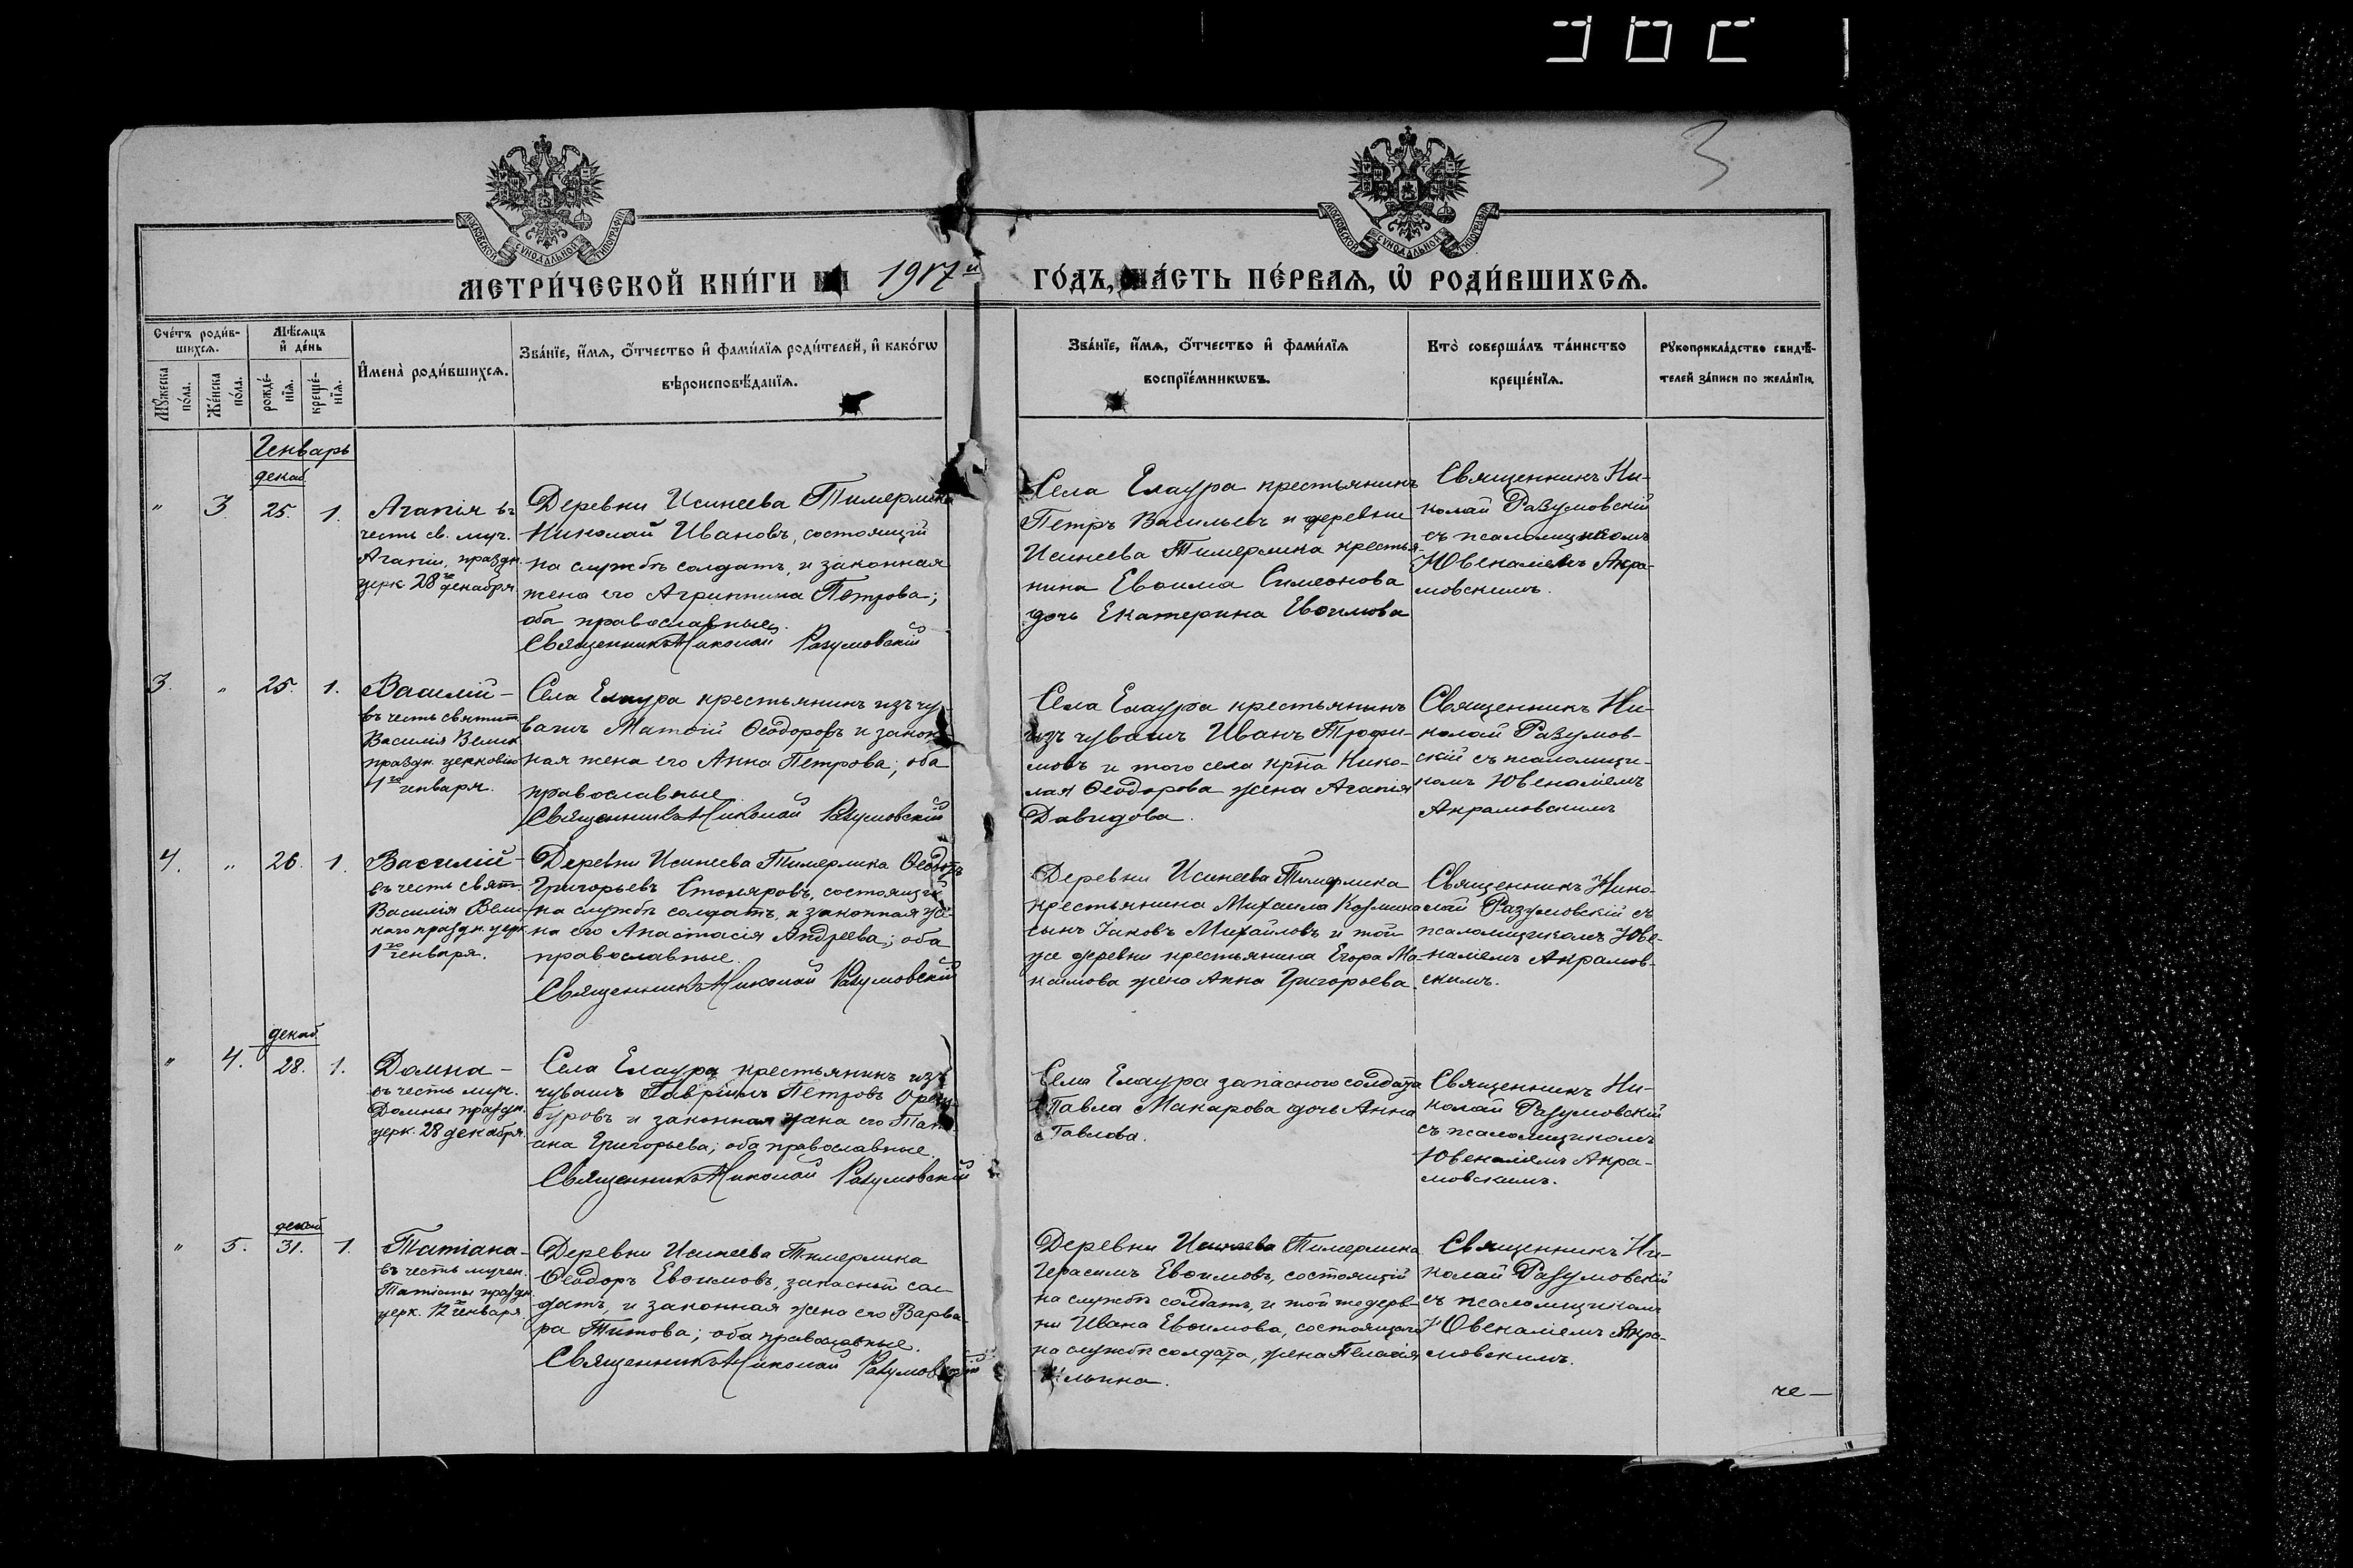 3
МОСКОВСКОЙ СѴНОДАЛЬНОЙ ТИПОГРАФІИ
МОСКОВСКОЙ СѴНОДАЛЬНОЙ ТИПОГРАФІИ
МЕТРИ́ЧЕСКОЙ КНИ́ГИ 1917й ГО́ДЪ, ЧА́СТЬ ПЕ́РВАѦ, Ѡ҆ РОДИ́ВШИХСѦ.
Сче́тъ роди́в-
шихсѧ.
Мѣ́сѧцъ
и҆ де́нь
Мꙋ́жеска
по́ла.
Же́нска
по́ла.
рожде́-
нїѧ.
креще́-
нїѧ.
И҆мена̀ роди́вшихсѧ.
Зва́нїе, и҆́мѧ, ѻ҆́тчество и҆ фами́лїѧ роди́телей, и҆ како́гѡ
вѣроисповѣ́данїѧ.
Зва́нїе, и҆́мѧ, ѻ҆́тчество и҆ фами́лїѧ
воспрїе́мникѡвъ.
Кто̀ соверша́лъ та́инство
креще́нїѧ.
Рꙋкоприкла́дство свидѣ́-
телей за́писи по жела́нїю.
Генварь
декаб.
" 3. 25. 1.
Агапія въ
честь св. муч.
Агапіи, праздн.
церк 28го декабря
Деревни Исинеева Тимерлика
Николай Ивановъ, состоящій
на службѣ солдатъ, и законная
жена его Агриппина Петрова;
оба православные.
Священникъ Николай Разумовскій
Села Елаура крестьянинъ
Петръ Васильевъ и деревни
Исинеева Тимерлика крестья-
нина Евѳима Симеонова
дочь Екатерина Евѳимова
Священникъ Ни-
колай Разумовскій
съ псаломщикомъ
Ювеналіемъ Акра-
мовскимъ.
3. " 25. 1.
Василій -
въ честь святит
Василія Велик
праздн. церковію
1го генваря.
Села Елаура крестьянинъ изъ чу-
вашъ Матѳій Ѳеодоровъ и закон-
ная жена его Анна Петрова; оба
православные
Священникъ Николай Разумовскій
Села Елаура крестьянинъ
изъ чувашъ Иванъ Трофи-
мовъ и того села крⷭ҇на Нико-
лая Ѳеодорова жена Агапія
Давидова.
Священникъ Ни-
колай Разумов-
скій съ псаломщи-
комъ Ювеналіемъ
Акрамовскимъ
4. " 26. 1.
Василій -
въ честь свят.
Василія Вели-
каго праздн. церк
1го генваря.
Деревни Исинеева Тимерлика
Григорьевъ Столяровъ, состоящій
на службѣ солдатъ, и законная же-
на его Анастасія Андреева; оба
православные.
Священникъ Николай Разумовскій
Деревни Исинеева Тимерлика
крестьянина Михаила Козмина
сынъ Іаковъ Михайловъ и той
же деревни крестьянина Егора Ма-
ксимова жена Анна Григорьева.
Священникъ Нико-
лай Разумовскій съ
псаломщикомъ Юве-
наліемъ Акрамов-
скимъ.
декаб.
" 4. 28. 1.
Домна -
въ честь муч.
Домны праздн.
церк. 28 декабря.
Села Елаура крестьянинъ изъ
чувашъ Гавріилъ Петровъ
и законная жена его Тат-
іана Григорьева; оба православные.
Священникъ Николай Разумовскій
Села Елаура запасного солдата
Павла Макарова дочь Анна
Павлова.
Священникъ Ни-
колай Разумовскій
съ псаломщикомъ
Ювеналіемъ Акра-
мовскимъ.
декаб
" 5. 31. 1.
Татіана -
въ честь мучен.
Татіаны праздн.
церк. 12го генваря
Деревни Исинеева Тимерлика
Ѳеодоръ Евѳимовъ, запасный сол-
датъ, и законная жена его Варва-
ра Титова; оба православные.
Священникъ Николай Разумовскій
Деревни Исинеева Тимерлика
Герасимъ Евѳимовъ, состоящій
на службѣ солдатъ, и той же дерев-
ни Ивана Евѳимова, состоящаго
на службѣ солдата, жена Пелагія
Ильина.
Священникъ Ни-
колай Разумовскій
съ псаломщикомъ
Ювеналіемъ Акра-
мовскимъ.
че-